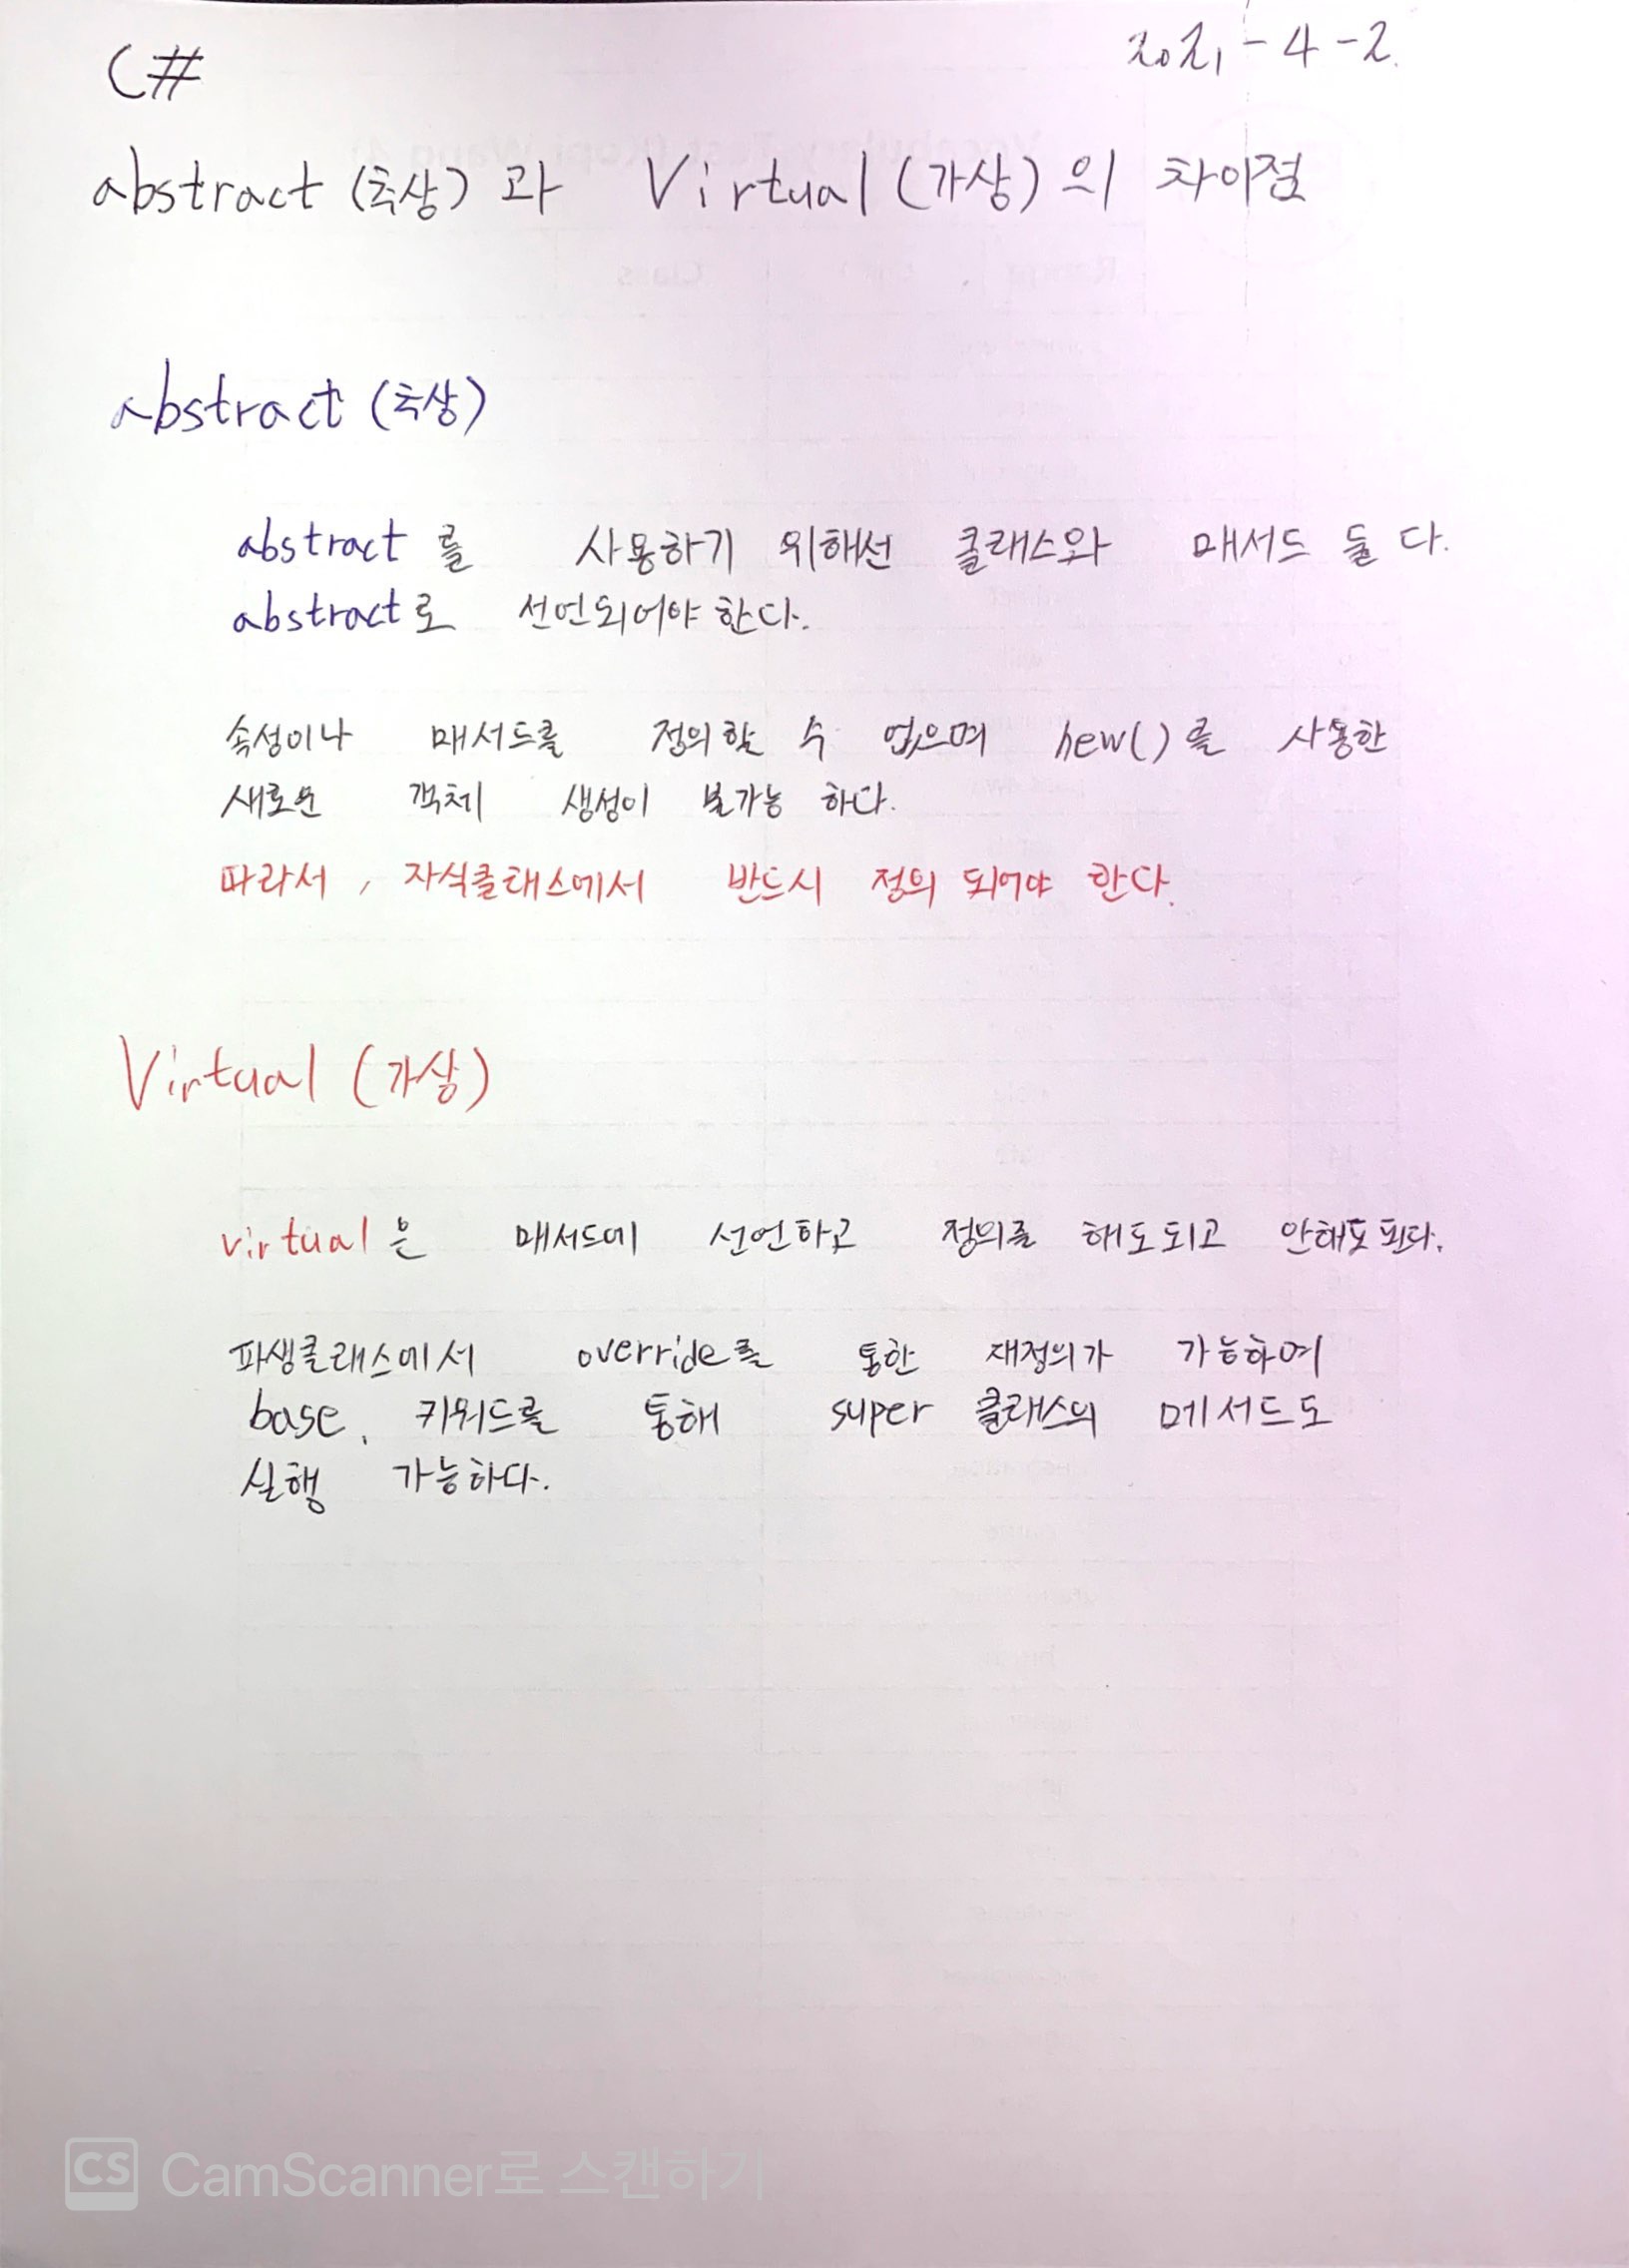 C#
2021-4-2.
abstract (추상) 과 Virtual (가상) 의 차이점
abstract (추상)
abstract 를 사용하기 위해선 클래스와 매서드 둘 다.
abstract로 선언되어야 한다.
속성이나 매서드를 정의할 수 없으며 new()를 사용한
새로운 객체 생성이 불가능 하다.
따라서, 자식클래스에서 반드시 정의 되어야 한다.
Virtual (가상)
virtual은 매서드에 선언하고 정의를 해도되고 안해도 된다.
파생클래스에서 override를 통한 재정의가 가능하며
base. 키워드를 통해 super 클래스의 메서드도
실행 가능하다.
CS CamScanner로 스캔하기